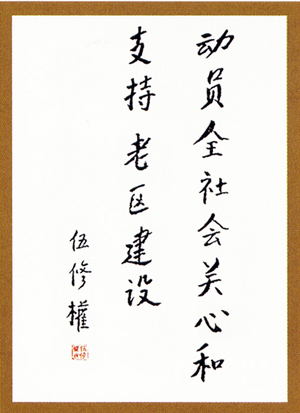 动员全社会关心和
支持老区建设
伍修權